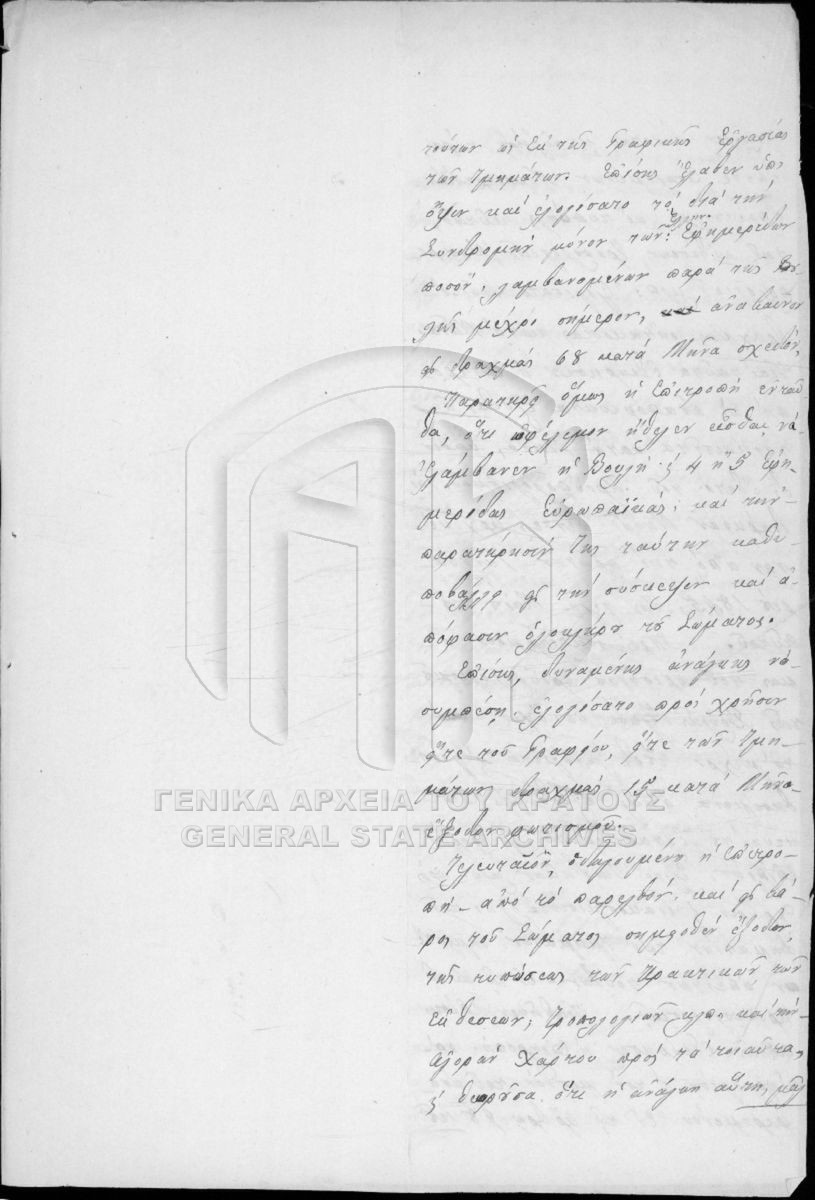 τούτων ὡς ἐκ τῆς Γραφικῆς ἐργασίας
τῶν Τμημάτων. Ἐπίσης ἔλαβεν ὑπ'
ὄψιν καὶ ἐλογίσατο τὸ διὰ τὴν
Συνδρομὴν μόνον τῶν Ἑλλην. Ἐφημερίδων
ποσόν, λαμβανομένων παρὰ τῆς Βου-
λῆς μέχρι σήμερον, ἀναβαῖνον
εἰς δραχμὰς 68 κατὰ Μῆνα σχεδόν.
Παρατηρεῖ ὅμως ἡ Ἐπιτροπὴ ἐνταῦ
θα, ὅτι ὠφέλιμον ἤθελεν εἶσθαι νὰ
λαμβάνεν ἡ Βουλὴ 4 ἢ 5 Ἐφη-
μερίδας Εὐρωπαϊκάς· καὶ τὴν
παρατήρησίν της ταύτην καθυ-
ποβάλλει εἰς τὴν σύσκεψιν καὶ ἀ-
πόφασιν ὁλοκλήρου τοῦ Σώματος.
Ἐπίσης, δυναμένης ἀνάγκης νὰ
συμπέσῃ, ἐλογίσατο πρὸς χρῆσιν
εἴτε τοῦ Γραφείου, εἴτε τῶν Τμη-
μάτων δραχμὰς 15 κατὰ Μῆνα
ἔξοδον φωτισμοῦ.
Τελευταῖον, ὁδηγουμένη ἡ Ἐπιτρο-
πὴ ἀπὸ τὸ παρελθόν, καὶ εἰς βά-
ρος τοῦ Σώματος σημειωθὲν ἔξοδον,
τῆς τυπώσεως τῶν Πρακτικῶν τῶν
Ἐκθέσεων, Τροπολογιῶν κλπ. καὶ τὴν
ἀγορὰν Χάρτου πρὸς τὰ τοιαῦτα,
θεωροῦσα ὅτι ἡ ἀνάγκη αὕτη
ΓΕΝΙΚΑ ΑΡΧΕΙΑ ΤΟΥ ΚΡΑΤΟΥΣ
GENERAL STATE ARCHIVES